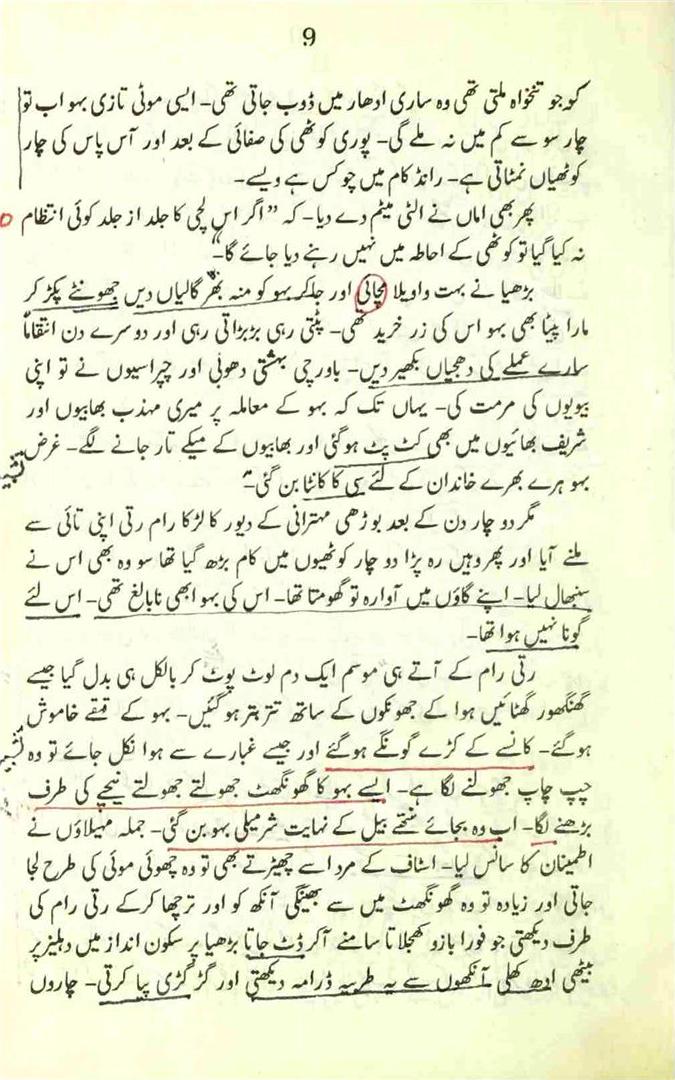 9
کو جو تنخواہ ملتی تھی وہ ساری ادھار میں ڈوب جاتی تھی۔ ایسی موٹی تازی بہو اب تو
چار سو سے کم میں نہ ملے گی۔ پوری کوٹھی کی صفائی کے بعد اور آس پاس کی چار
کوٹھیاں نمٹاتی ہے۔ رانڈ کام میں چوکس ہے ویسے۔
پھر بھی اماں نے الٹی میٹم دے دیا۔ کہ ”اگر اس لچی کا جلد از جلد کوئی انتظام
نہ کیا گیا تو کوٹھی کے احاطہ میں نہیں رہنے دیا جائے گا۔“
بڑھیا نے بہت واویلا مچائی اور جاکر بہو کو منہ بھر گالیاں دیں جھونٹے پکڑ کر
مارا پیٹا بھی بہو اس کی زر خرید تھی۔ پٹتی رہی بڑبڑاتی رہی اور دوسرے دن انتقاماً
سارے عملے کی دھجیاں بکھیر دیں۔ باورچی بہشتی دھوبی اور چپراسیوں نے تو اپنی
بیویوں کی مرمت کی۔ یہاں تک کہ بہو کے معاملہ پر میری مہذب بھابیوں اور
شریف بھائیوں میں بھی کٹ پٹ ہوگئی اور بھابیوں کے میکے تار جانے لگے۔ غرض
بہو ہرے بھرے خاندان کے لئے سی کا کانٹا بن گئی۔
مگر دو چار دن کے بعد بوڑھی مہترانی کے دیور کا لڑکا رام رتی اپنی تائی سے
ملنے آیا اور پھر وہیں رہ پڑا دو چار کوٹھیوں میں کام بڑھ گیا تھا سو وہ بھی اس نے
سنبھال لیا۔ اپنے گاؤں میں آوارہ تو گھومتا تھا۔ اس کی بہو ابھی نابالغ تھی۔ اس لئے
گونا نہیں ہوا تھا۔
رتی رام کے آتے ہی موسم ایک دم لوٹ پوٹ کر بالکل ہی بدل گیا جیسے
گھنگھور گھٹائیں ہوا کے جھونکوں کے ساتھ تتر بتر ہوگئیں۔ بہو کے قہقہے خاموش
ہوگئے۔ کانسے کے کڑے گونگے ہوگئے اور جیسے غبارے سے ہوا نکل جائے تو وہ
چپ چاپ جھولنے لگا ہے۔ ایسے بہو کا گھونگھٹ جھولتے جھولتے نیچے کی طرف
بڑھنے لگا۔ اب وہ بجائے نتھے بیل کے نہایت شرمیلی بہو بن گئی۔ جملہ مہیلاؤں نے
اطمینان کا سانس لیا۔ اسٹاف کے مرد اسے چھیڑتے بھی تو وہ چھوئی موئی کی طرح لجا
جاتی اور زیادہ تو وہ گھونگھٹ میں سے بھینگی آنکھ کو اور ترچھا کرکے رتی رام کی
طرف دیکھتی جو فورا بازو کھجلاتا سامنے آکر ڈٹ جاتا بڑھیا پر سکون انداز میں دہلیز پر
بیٹھی ادھ کھلی آنکھوں سے یہ طربیہ ڈرامہ دیکھتی اور گڑ گڑی پیا کرتی۔ چاروں